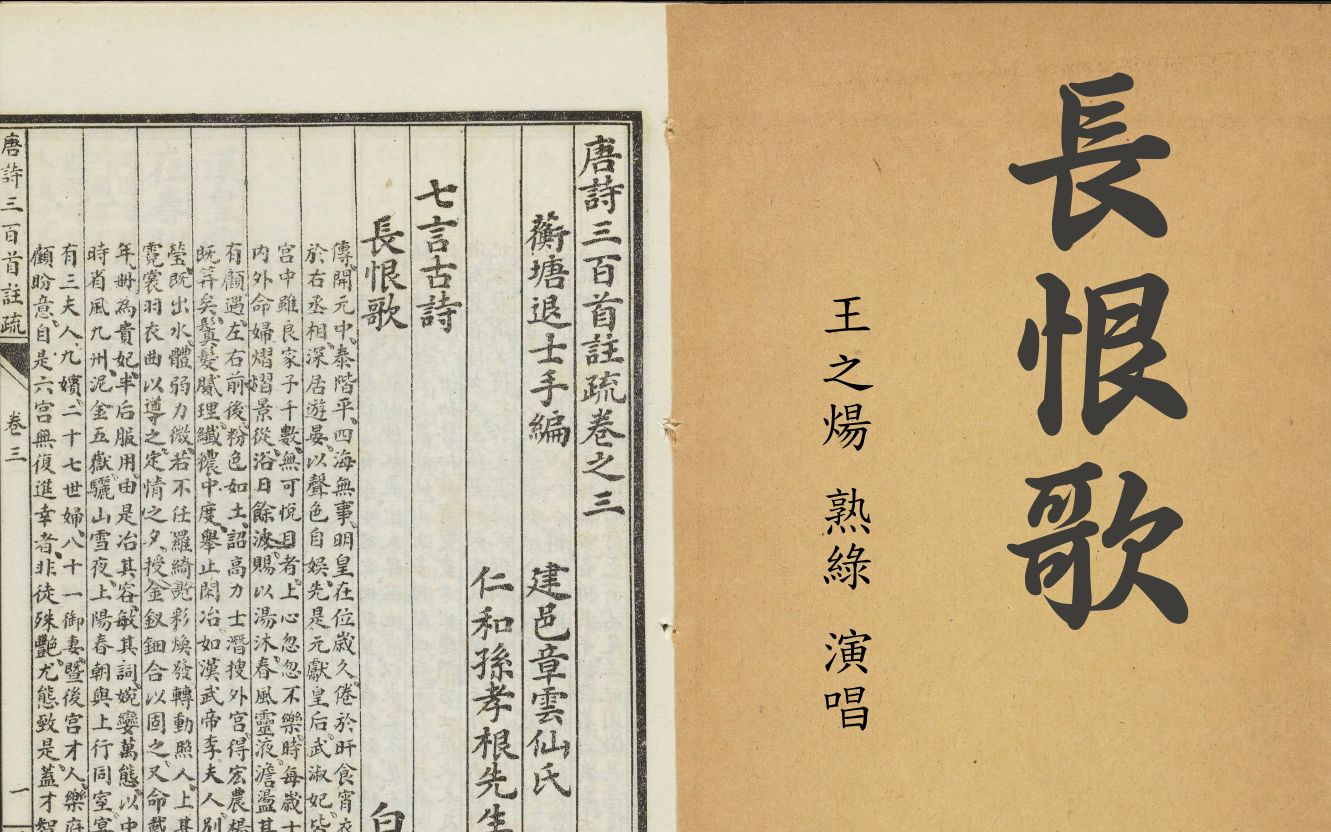 長恨歌
王之煬 熟綠 演唱
唐詩三百首註疏卷之三
蘅塘退士手編 建邑章雲仙氏
仁和孫孝根先生
七言古詩
長恨歌 白
傳開元中泰階平四海無事明皇在位歲久倦於旰食宵衣
於右丞相深居遊晏以聲色自娛先是元獻皇后武淑妃皆
宮中雖良家子千數無可悅目者上心忽忽不樂時每歲十
內外命婦熠熠景從浴日餘波賜以湯沐春風靈液澹盪其
有顧遇左右前後粉色如土詔高力士潛搜外宮得宏農楊
既笄矣鬒髮膩理纖襛中度舉止閑冶如漢武帝李夫人別
瑩既出水體弱力微若不任羅綺光彩煥發轉動照人上甚
霓裳羽衣曲以導之定情之夕授金釵鈿合以固之又命戴
年冊為貴妃半后服用由是冶其容敏其詞婉孌萬態以中
時省風九州泥金五嶽驪山雪夜上陽春朝與上行同室宴
有三夫人九嬪二十七世婦八十一御妻暨後宮才人樂府
顧盼意自是六宮無復進幸者非徒殊艷尤態致是蓋才智
唐詩三百首註疏 卷三 一